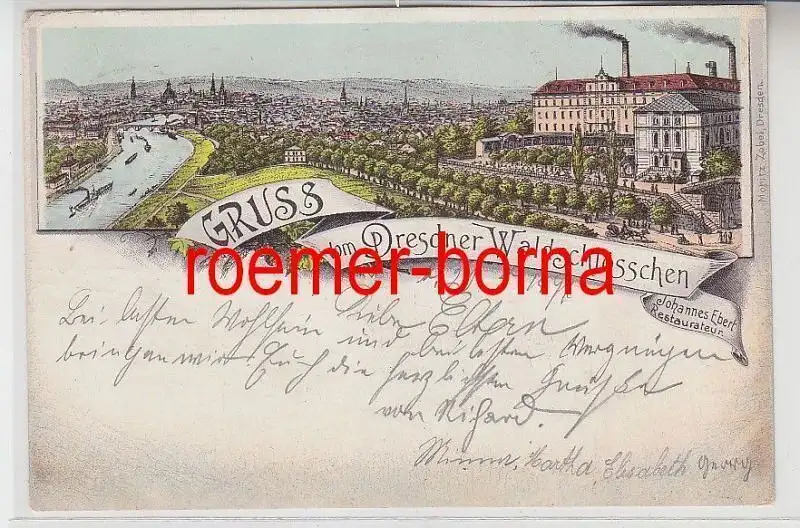 GRUSS
vom Dresdner Waldschlösschen
Johannes Ebert
Restaurateur.
Moritz Zobel, Dresden.
roemer-borna
Liebe Eltern
Bei besten Wohlsein und bei besten Vergnügen
bringen wir Euch die herzlichsten Grüße
von Richard.
Minna, Martha, Elisabeth Georg